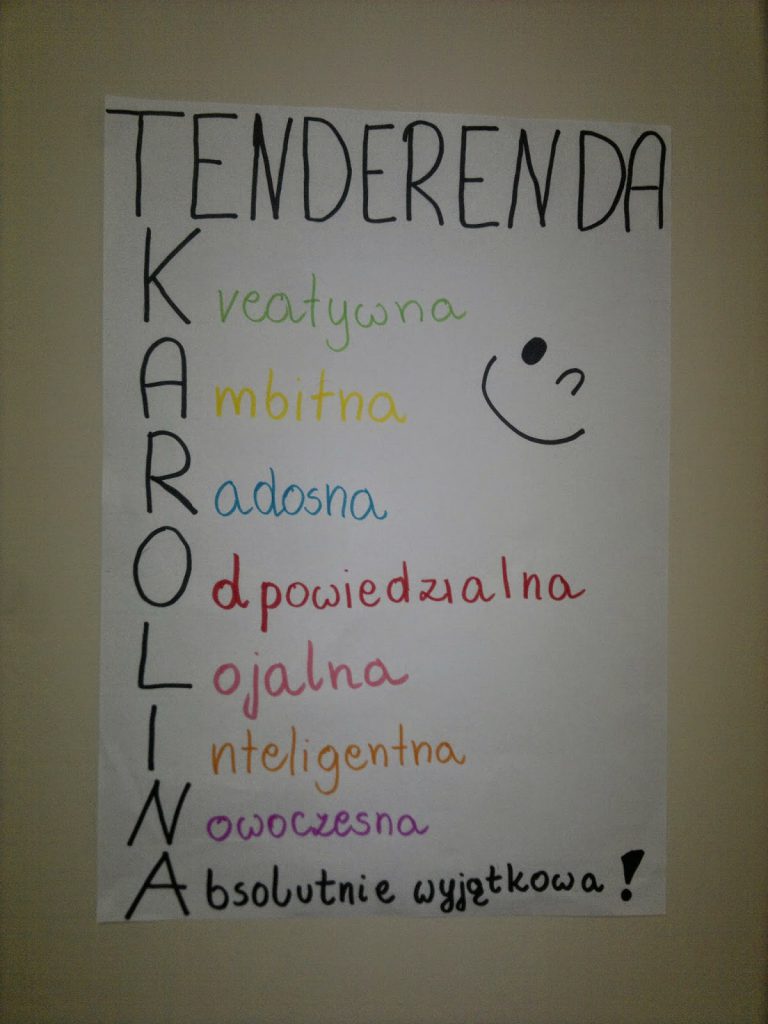 TENDERENDA
Kreatywna
Ambitna
Radosna
Odpowiedzialna
Lojalna
Inteligentna
Nowoczesna
Absolutnie wyjątkowa!